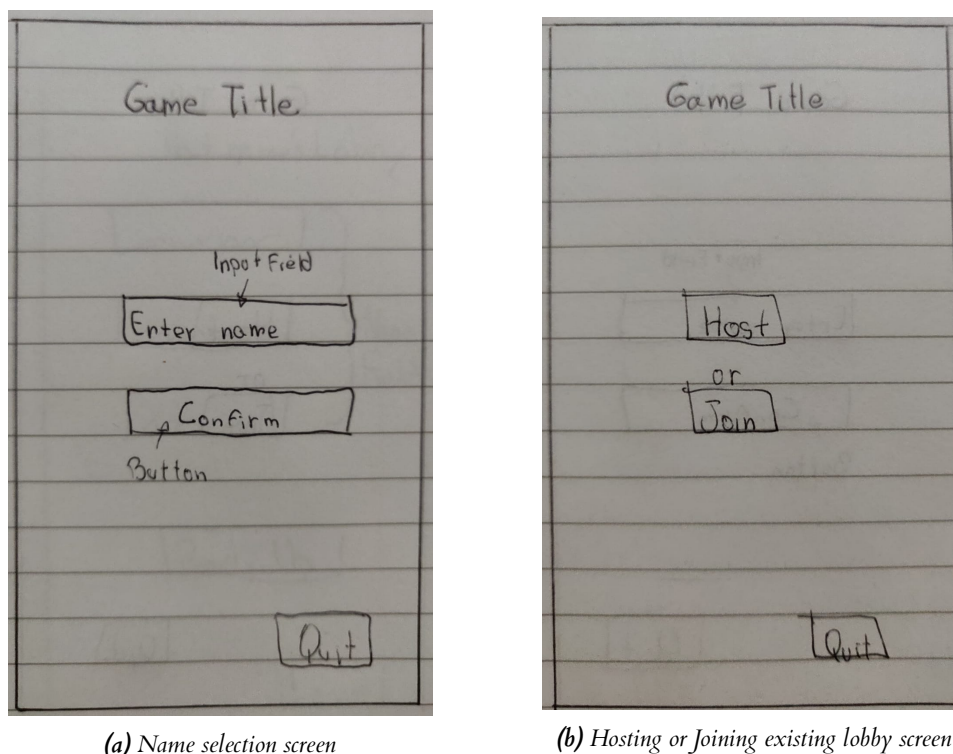 Game Title
Input Field
Enter name
Confirm
Button
Quit
(a) Name selection screen
Game Title
Host
or
Join
Quit
(b) Hosting or Joining existing lobby screen